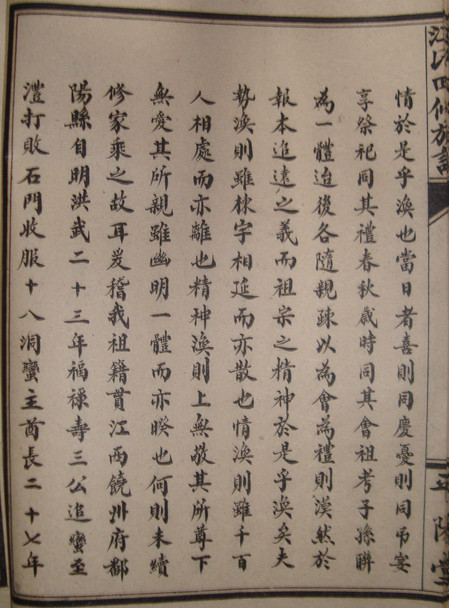 四修族譜
陽堂
情於是乎渙也當日者喜則同慶憂則同弔宴
享祭祀同其禮春秋歲時同其會祖考子孫聯
為一體迨後各隨親疎以為會為禮則漠然於
報本追遠之義而祖宗之精神於是乎渙矣夫
勢渙則雖棟宇相延而亦散也情渙則雖千百
人相處而亦離也精神渙則上無敬其所尊下
無愛其所親雖幽明一體而亦暌也何則未續
修家乘之故耳爰稽我祖籍貫江西饒州府鄱
陽縣自明洪武二十三年福祿壽三公追蠻至
澧打敗石門收服十八洞蠻主酋長二十七年